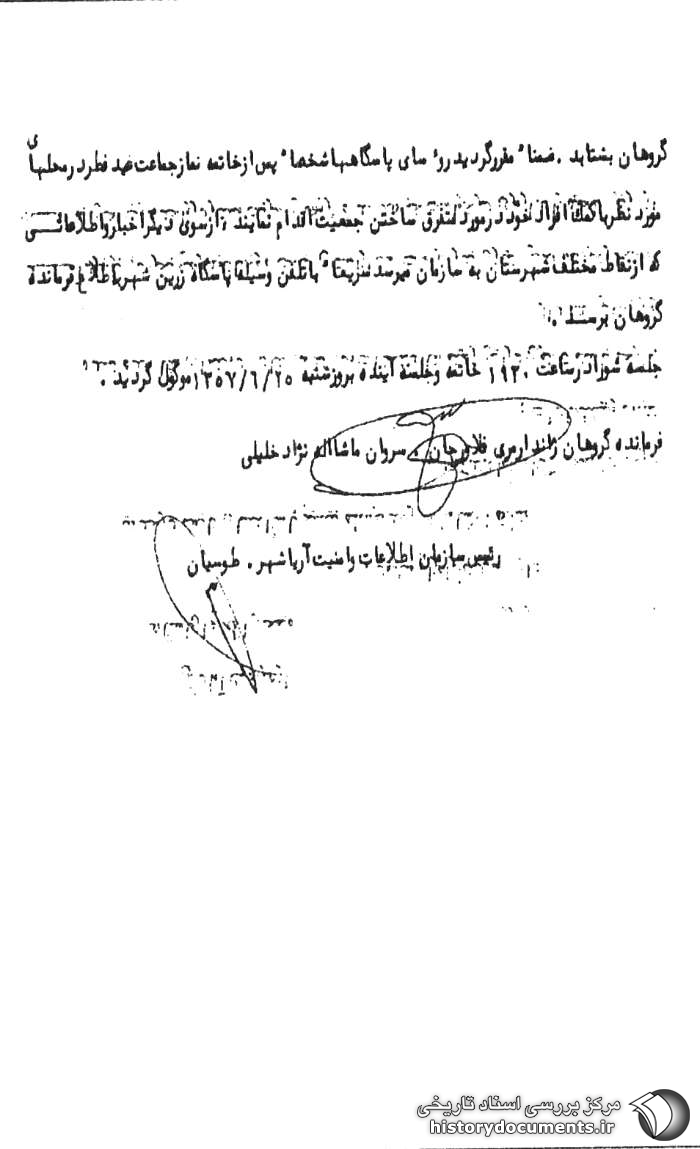 گروهان بشتابد . ضمنا" مقررگردید روسای پاسگاهها شخصا" پس ازخاتمه نماز جماعت عید فطر در محلهای
مورد نظر با کمک افراد خود در مورد متفرق ساختن جمعیت اقدام نمایند ، ازسوی دیگر اخبار و اطلاعاتـــی
که ازنقاط مختلف شهرستان به سازمان میرسد سریعا" با تلفن وسیله پاسگاه زرین شهر باطلاع فرمانده
گروهان برسد .
جلسه شورا درساعت ۱۹۳۰ خاتمه و جلسه آینده بروزشنبه ۱۳۵۷/۶/۲۵ موکول گردید .
فرمانده گروهان ژاندارمری فلاورجان . سروان ماشااله نژاد خلیلی
رئیس سازمان اطلاعات و امنیت آریاشهر . طوسیان
مرکز بررسی اسناد تاریخی
historydocuments.ir